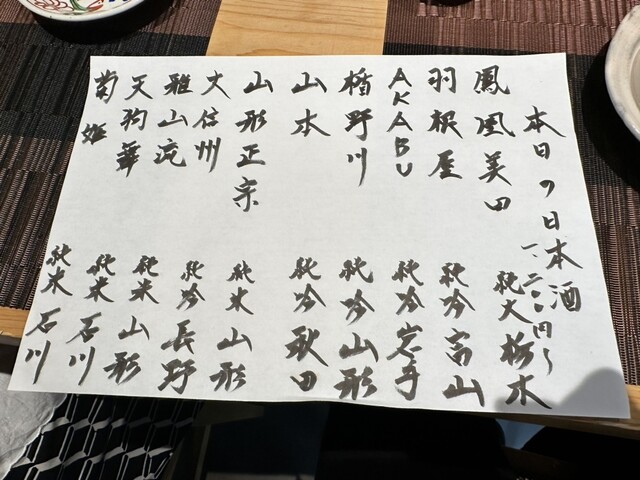 本日の日本酒
一、二〇〇円〜
鳳凰美田 純大 栃木
羽根屋 純吟 富山
AKABU 純吟 岩手
楯野川 純吟 山形
山本 純吟 秋田
山形正宗 純米 山形
大信州 純吟 長野
雅山流 純米 山形
天狗舞 純米 石川
菊姫 純米 石川